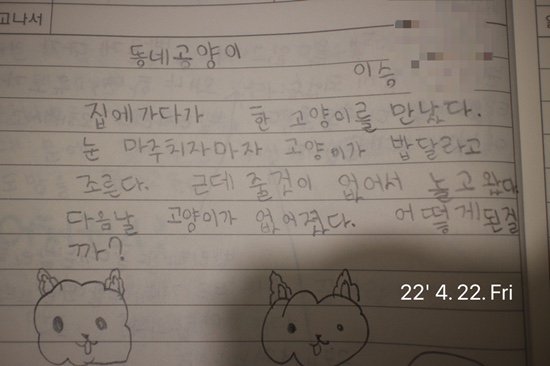 고나서
동네공양이
이승
집에가다가 한 고양이를 만났다.
눈 마주치자마자 고양이가 밥달라고
조른다. 근데 줄것이 없어서 놀고왔다.
다음날 고양이가 없어졌다. 어떻게된걸
까?
22' 4. 22. Fri